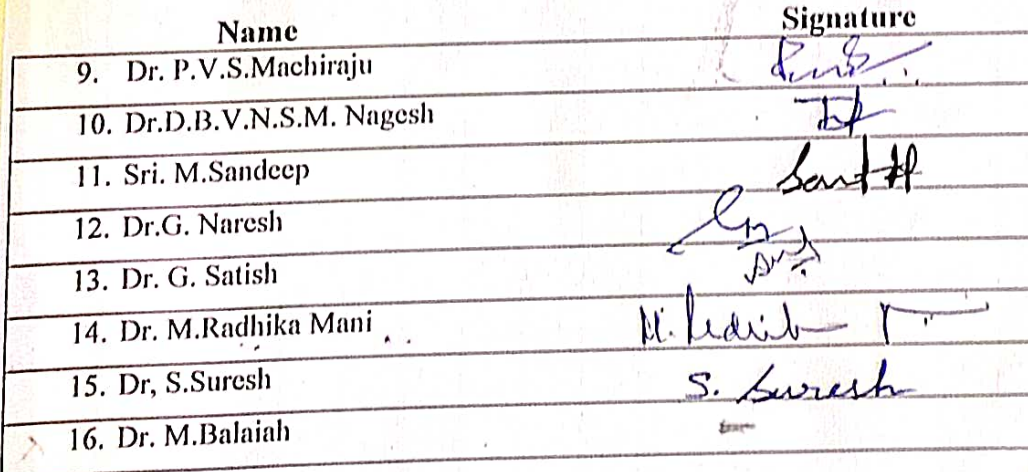 Name Signature
9. Dr. P.V.S.Machiraju
10. Dr.D.B.V.N.S.M. Nagesh
11. Sri. M.Sandeep
12. Dr.G. Naresh
13. Dr. G. Satish
14. Dr. M.Radhika Mani
15. Dr, S.Suresh S. Suresh
16. Dr. M.Balaiah